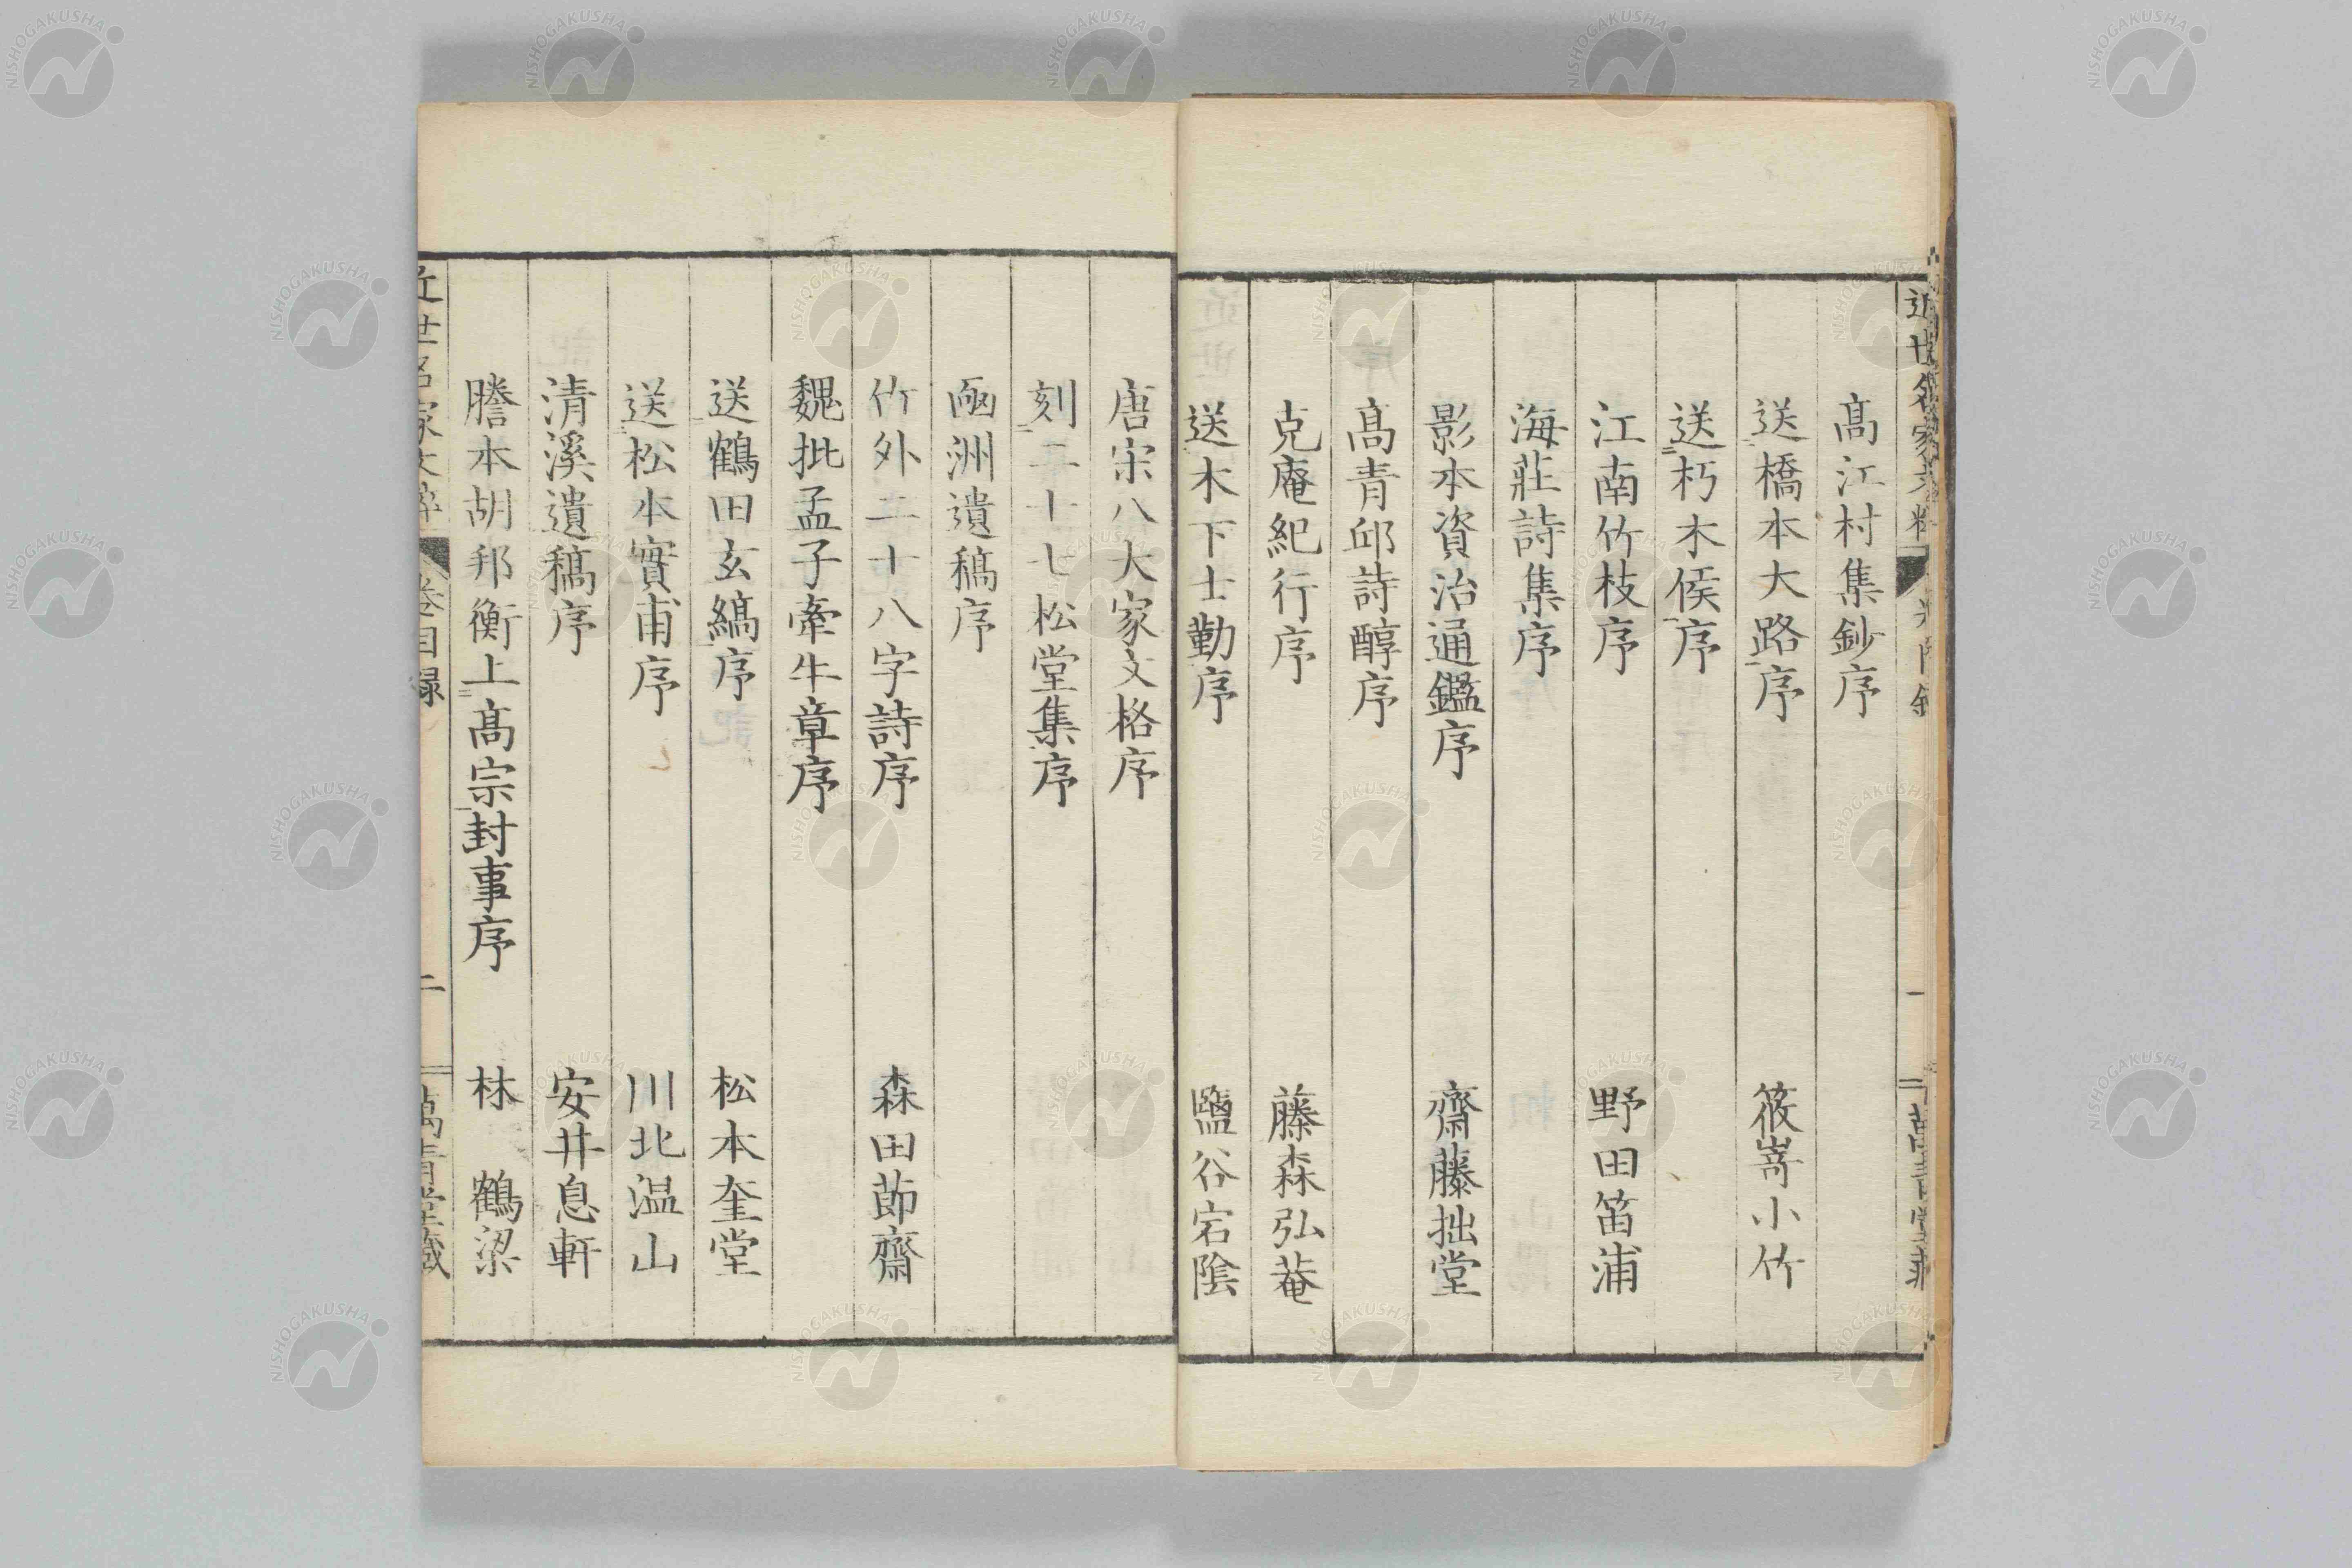 近世名家文粹 卷目錄 一 萬青堂藏
髙江村集鈔序
送橋本大路序 筱嵜小竹
送朽木侯序
江南竹枝序 野田笛浦
海莊詩集序
影本資治通鑑序 齋藤拙堂
髙青邱詩醇序
克庵紀行序 藤森弘菴
送木下士勤序 鹽谷宕陰
唐宋八大家文格序
刻二十七松堂集序
洲遺稿序
竹外二十八字詩序 森田節齋
魏批孟子牽牛章序
送鶴田玄縞序 松本奎堂
送松本實甫序 川北温山
清溪遺稿序 安井息軒
謄本胡邦衡上髙宗封事序 林鶴梁
近世名家文粹 卷目録 二 萬青堂藏
NISHOGAKUSHA